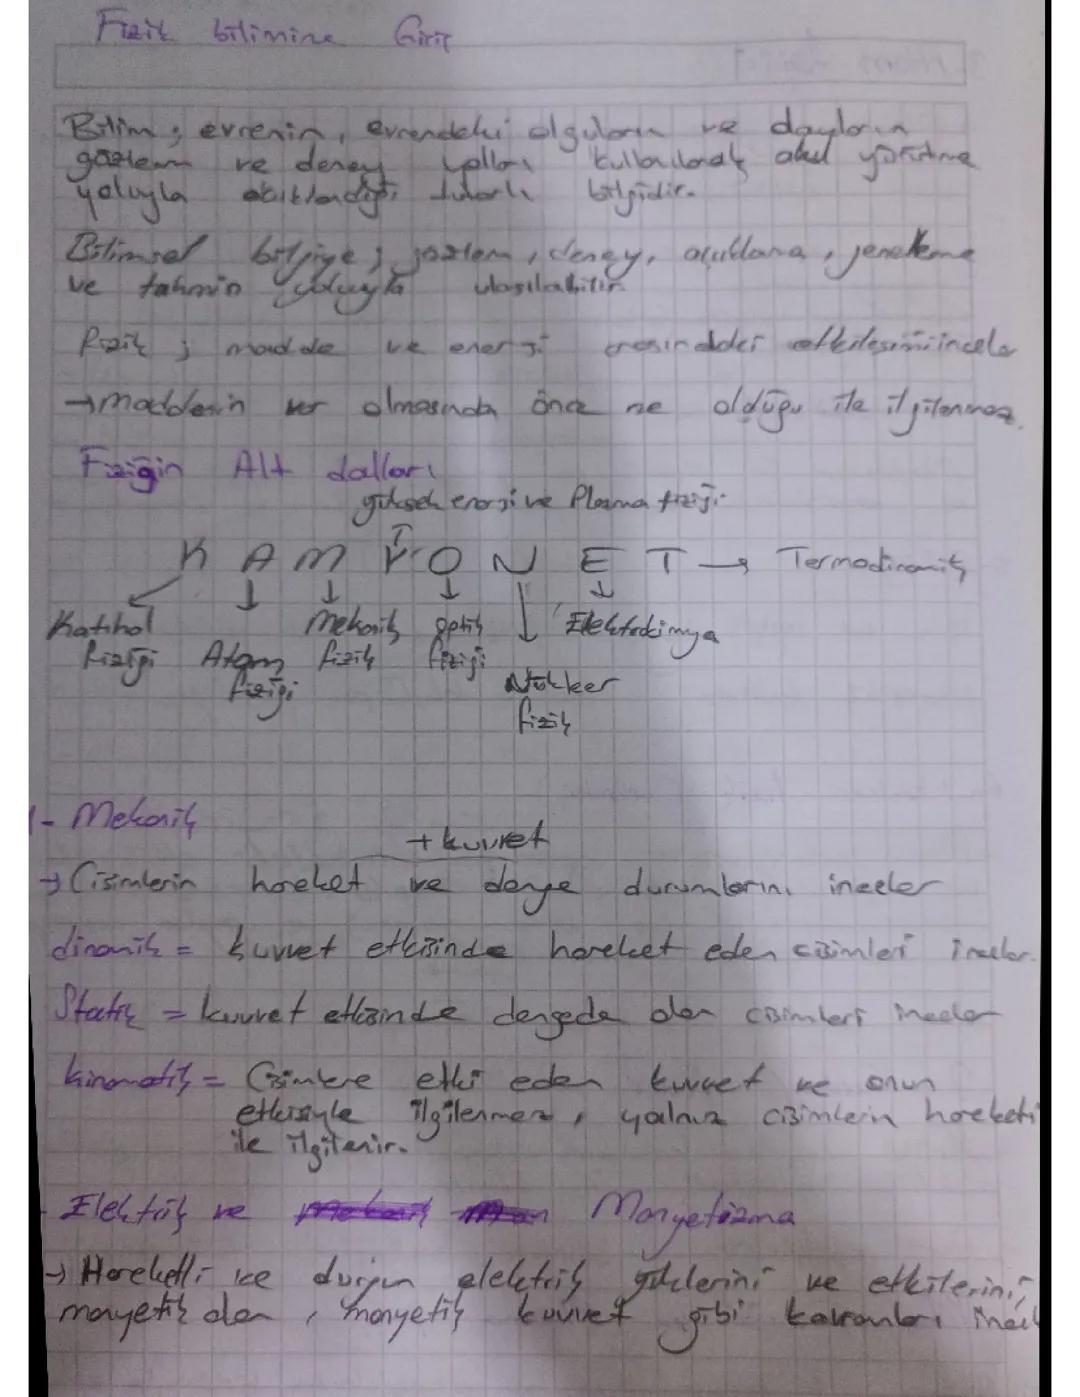 Fizik bilimine Giriş
Bilim; evrenin, evrendeki olguların ve olayların
gözlem ve deney yolları kullanılarak akıl yürütme
yoluyla açıklandığı tutarlı bilgidir.
Bilimsel bilgiye; gözlem, deney, açıklama, genelleme
ve tahmin yoluyla ulaşılabilir.
fizik; madde ve enerji arasındaki etkileşimi inceler
→ maddenin var olmasında önce ne olduğu ile ilgilenmez.
Fiziğin Alt dalları
yüksek enerji ve Plazma fiziği
K A M Y O N E T → Termodinamik
Katıhal fiziği
Atom fiziği
Mekanik fizik
optik fiziği
Nükleer fizik
Elektrokimya
1- Mekanik
+ kuvvet
→ Cisimlerin hareket ve denge durumlarını inceler
dinamik = kuvvet etkisinde hareket eden cisimleri inceler.
Statik = kuvvet etkisinde dengede olan cisimleri inceler
kinematik = Cisimlere etki eden kuvvet ve onun
etkisiyle ilgilenmez, yalnız cisimlerin hareketi
ile ilgilenir.
- Elektrik ve Manyetizma
→ Hareketli ve durgun elektrik yüklerini ve etkilerini,
manyetik alan, manyetik kuvvet gibi kavramları